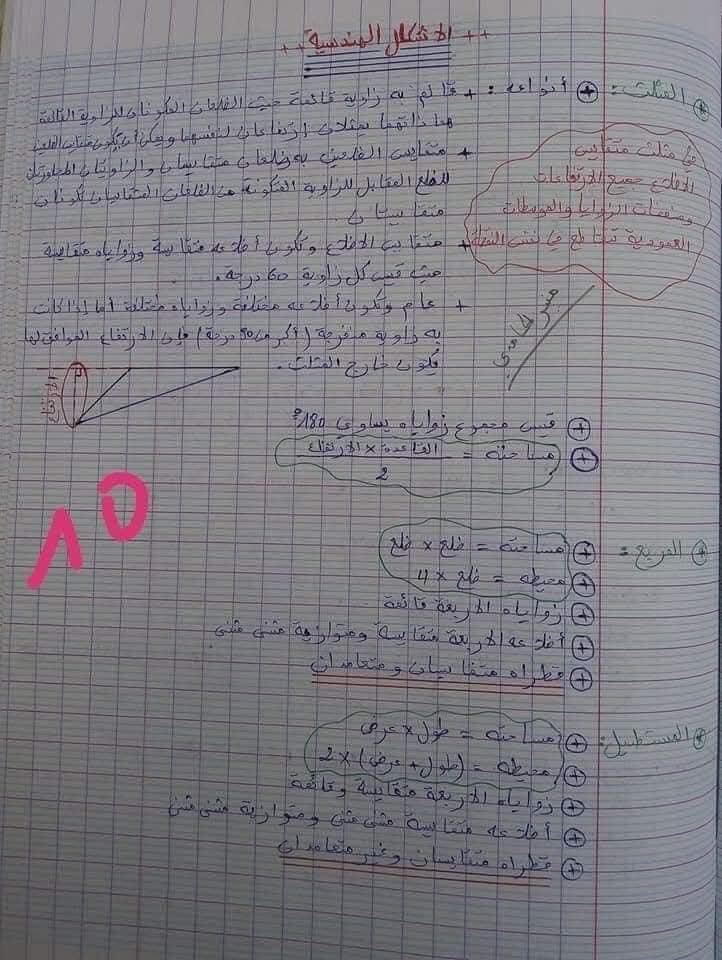 ++ الأشكال الهندسية ++
⊕ المثلث: ⊕ أنواعه: + قائم به زاوية قائمة حيث الضلعان المكونان للزاوية القائمة
هما ذاتهما يمثلان ارتفاعان لنفسهما ويمكن أن يكون متقايس الضلعين
+ متقايس الضلعين به ضلعان متقايسان والزاويتان المجاورتان
للضلع المقابل للزاوية المتكونة من الضلعان المتقايسان تكونان
متقايستان.
+ متقايس الأضلاع وتكون أضلاعه متقايسة وزواياه متقايسة
حيث قيس كل زاوية 60 درجة.
+ عام وتكون أضلاعه مختلفة وزواياه مختلفة أما إذا كانت
به زاوية منفرجة (أكبر من 90 درجة) فإن الارتفاع الموافق لها
يكون خارج المثلث.
في مثلث متقايس
الأضلاع جميع الارتفاعات
ومنصفات الزوايا والموسطات
العمودية تتقاطع في نفس النقطة
الارتفاع
⊕ قيس مجموع زواياه يساوي 180°
⊕ مساحته = القاعدة × الارتفاع
2
10
⊕ المربع: ⊕ مساحته = ضلع × ضلع
⊕ محيطه = ضلع × 4
⊕ زواياه الاربعة قائمة
⊕ أضلاعه الاربعة متقايسة ومتوازية مثنى مثنى
⊕ قطراه متقايسان ومتعامدان
⊕ المستطيل: ⊕ مساحته = طول × عرض
⊕ محيطه = (طول + عرض) × 2
⊕ زواياه الاربعة متقايسة وقائمة
⊕ أضلاعه متقايسة مثنى مثنى ومتوازية مثنى مثنى
⊕ قطراه متقايسان وغير متعامدان